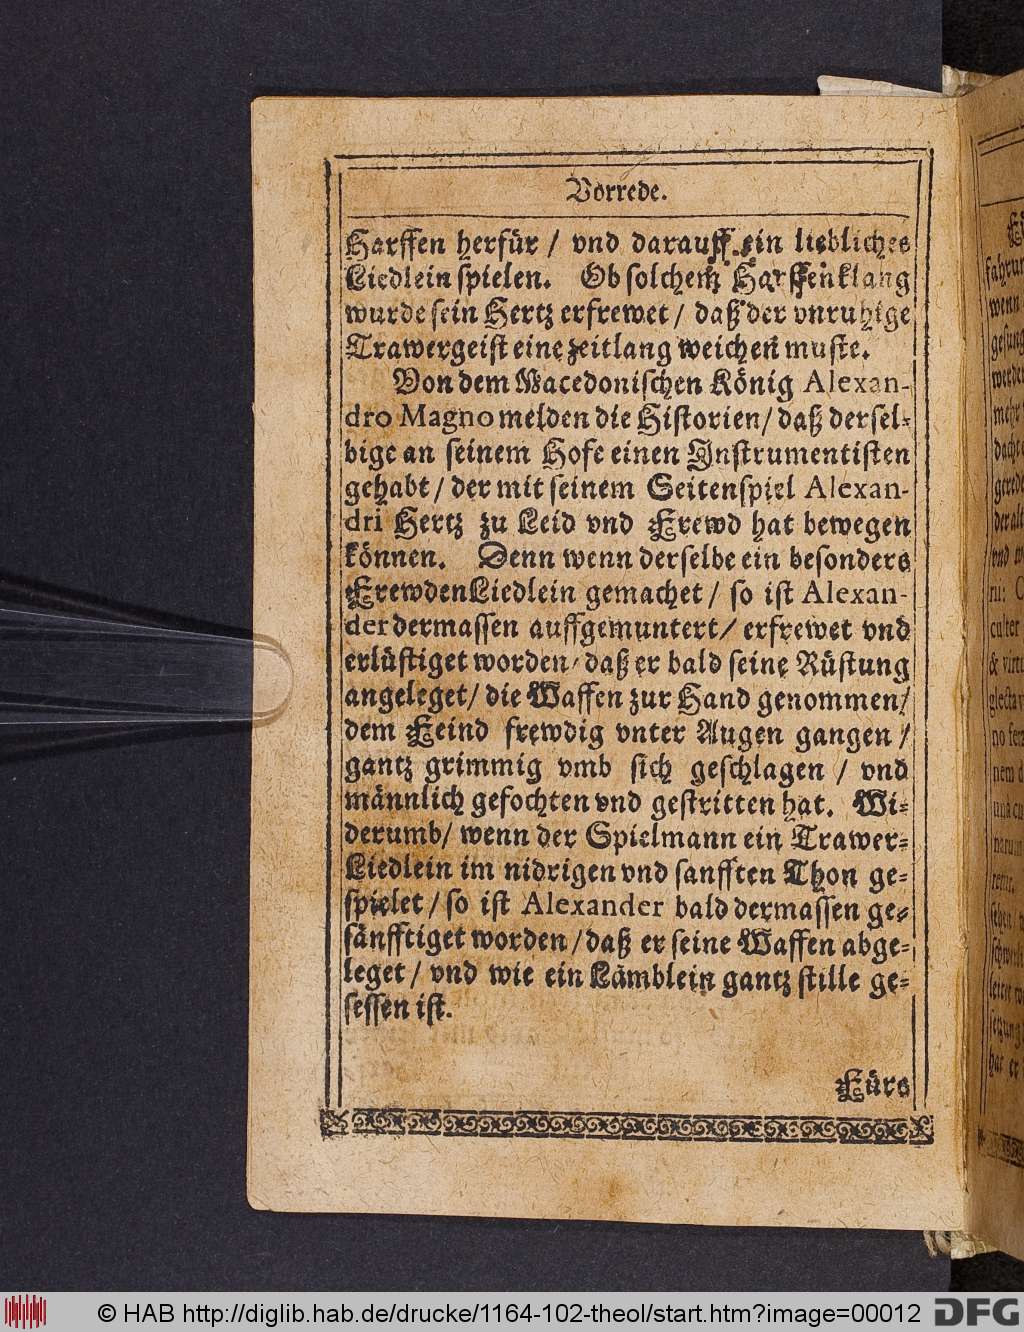 Vorrede.
Harffen herfür / vnd darauff ein liebliches
Liedlein spielen. Ob solchem Harffenklang
wurde sein Hertz erfrewet / daß der vnruhige
Trawergeist eine zeitlang weichen muste.
Von dem Macedonischen König Alexan-
dro Magno melden die Historien / daß dersel-
bige an seinem Hofe einen Instrumentisten
gehabt / der mit seinem Seitenspiel Alexan-
dri Hertz zu Leid vnd Frewd hat bewegen
können. Denn wenn derselbe ein besonders
FrewdenLiedlein gemachet / so ist Alexan-
der dermassen auffgemuntert / erfrewet vnd
erlüstiget worden / daß er bald seine Rüstung
angeleget / die Waffen zur Hand genommen /
dem Feind frewdig vnter Augen gangen /
gantz grimmig vmb sich geschlagen / vnd
männlich gefochten vnd gestritten hat. Wi-
derumb / wenn der Spielmann ein Trawer-
Liedlein im nidrigen vnd sanfften Thon ge-
spielet / so ist Alexander bald dermassen ge-
sänfftiget worden / daß er seine Waffen abge-
leget / vnd wie ein Lämblein gantz stille ge-
sessen ist.
Fürs
© HAB http://diglib.hab.de/drucke/1164-102-theol/start.htm?image=00012
DFG